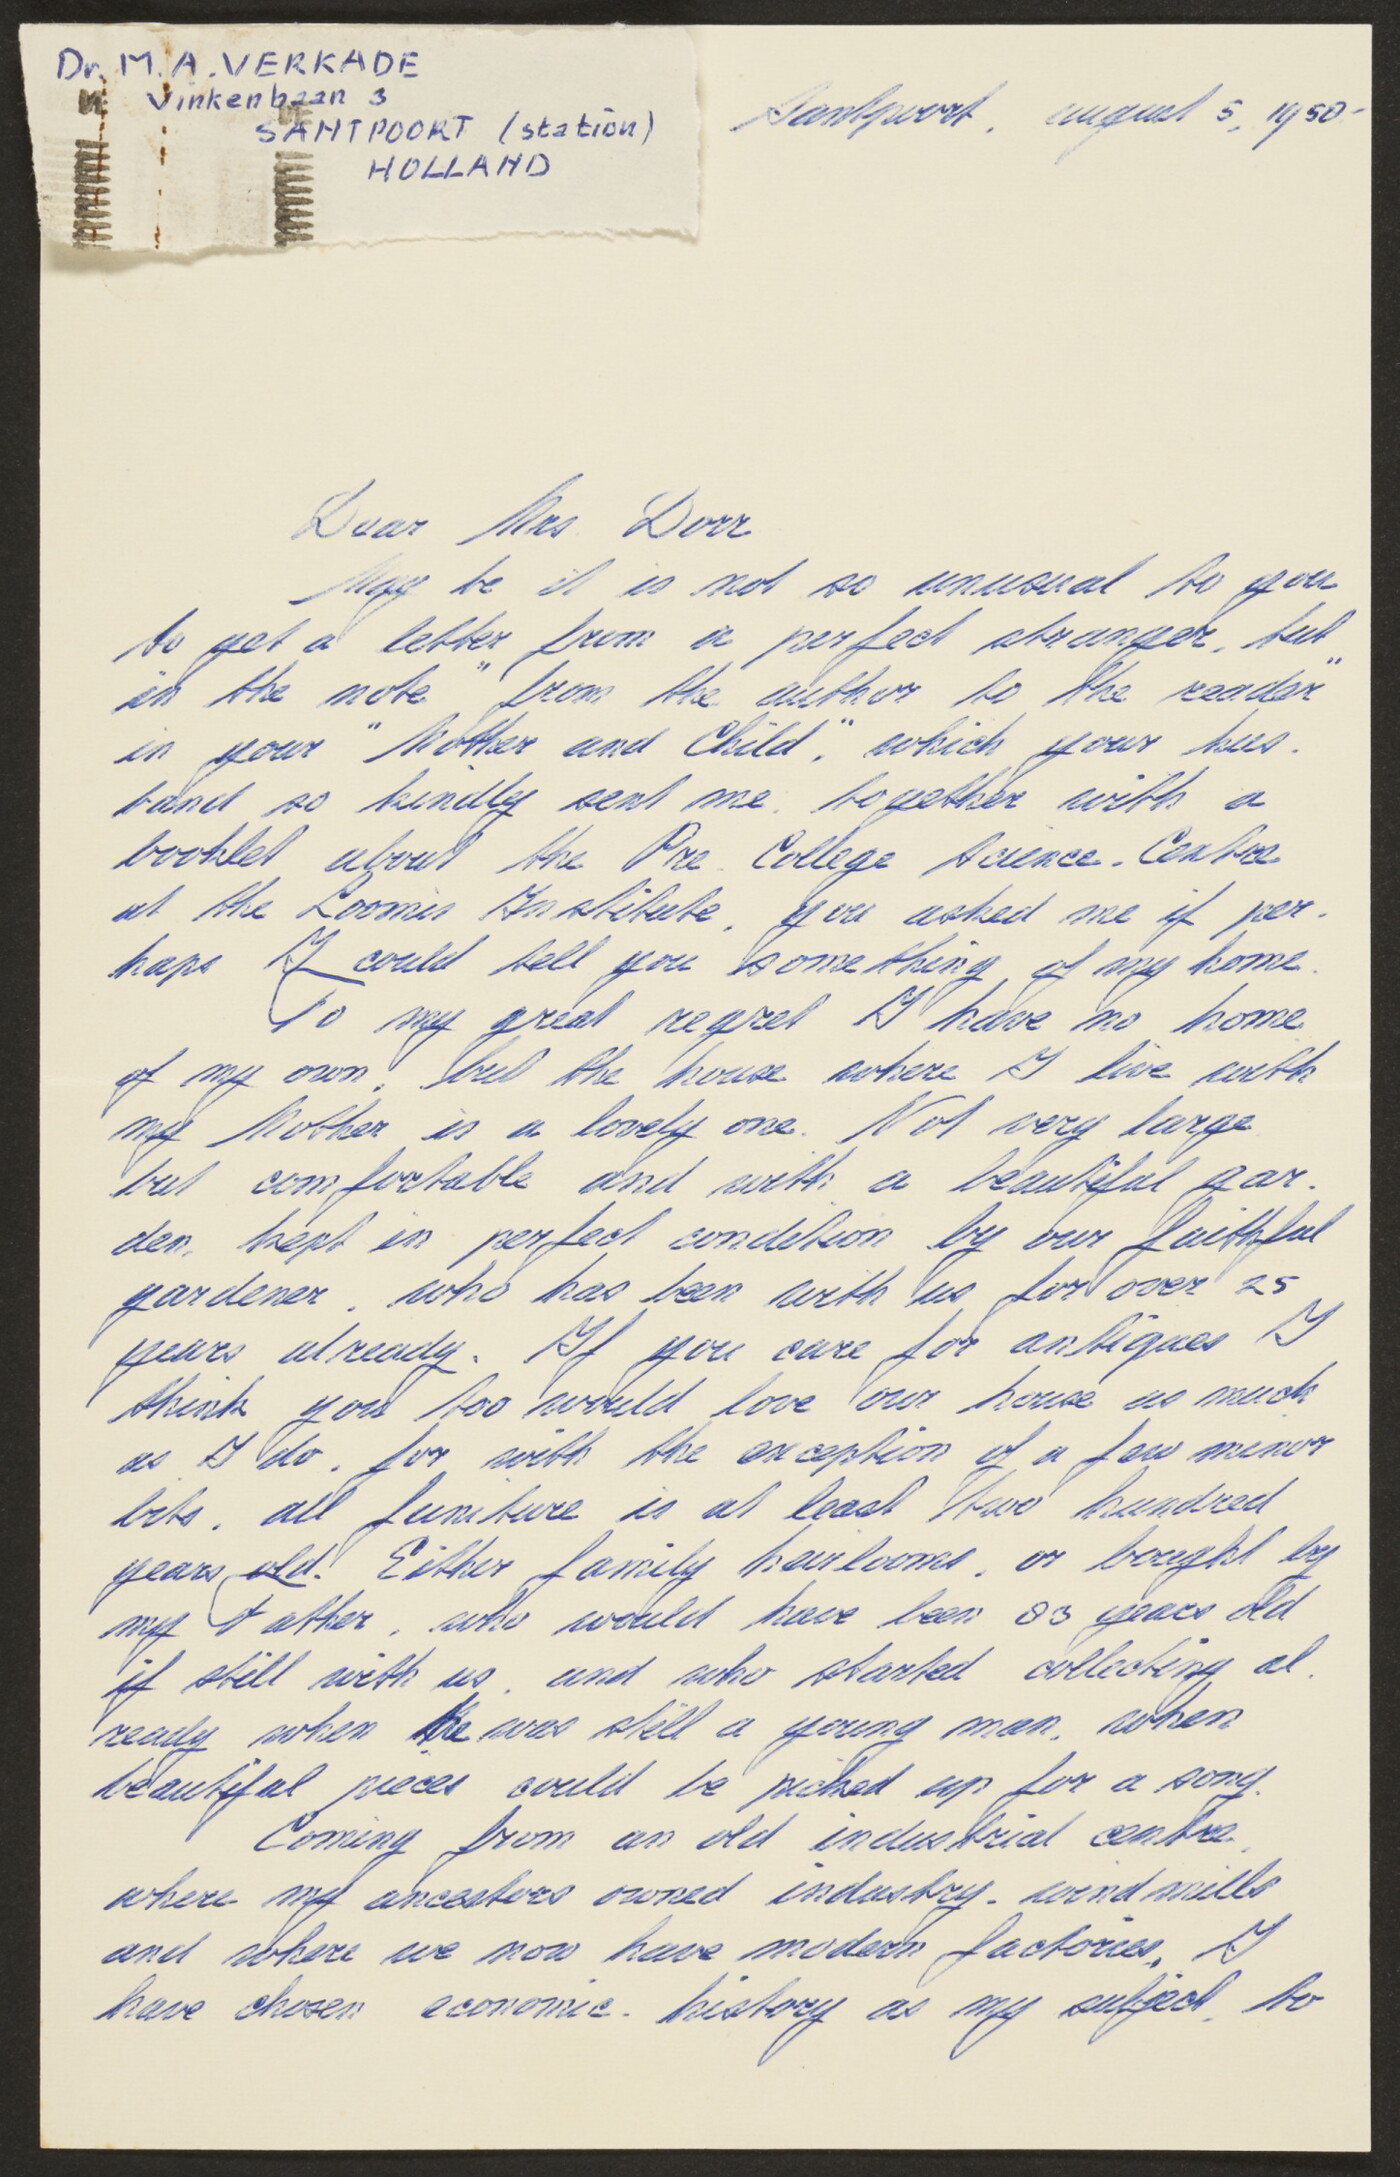 Dr. M. A. VERKADE
Vinkenbaan 3
SANTPOORT (station)
HOLLAND
Santpoort, august 5, 1950-
Dear Mrs Dorr
May be it is not so unusual to you
to get a letter from a perfect stranger, but
in the note "from the author to the reader"
in your "Mother and Child", which your hus-
band so kindly sent me, together with a
booklet about the Pre-College Science-Centre
at the Loomis Institute, you asked me if per-
haps I could tell you something of my home.
To my great regret I have no home
of my own, but the house where I live with
my Mother is a lovely one. Not very large
but comfortable and with a beautiful gar-
den, kept in perfect condition by our faithful
gardener, who has been with us for over 25
years already. If you care for antiques I
think you too would love our house as much
as I do, for with the exception of a few minor
bits, all funiture is at least two hundred
years old. Either family heirlooms, or bought by
my Father, who would have been 83 years old
if still with us, and who started collecting al-
ready when he was still a young man, when
beautiful pieces could be picked up for a song.
Coming from an old industrial centre,
where my ancestors owned industry-windmills
and where we now have modern factories, I
have chosen economic-history as my subject, to